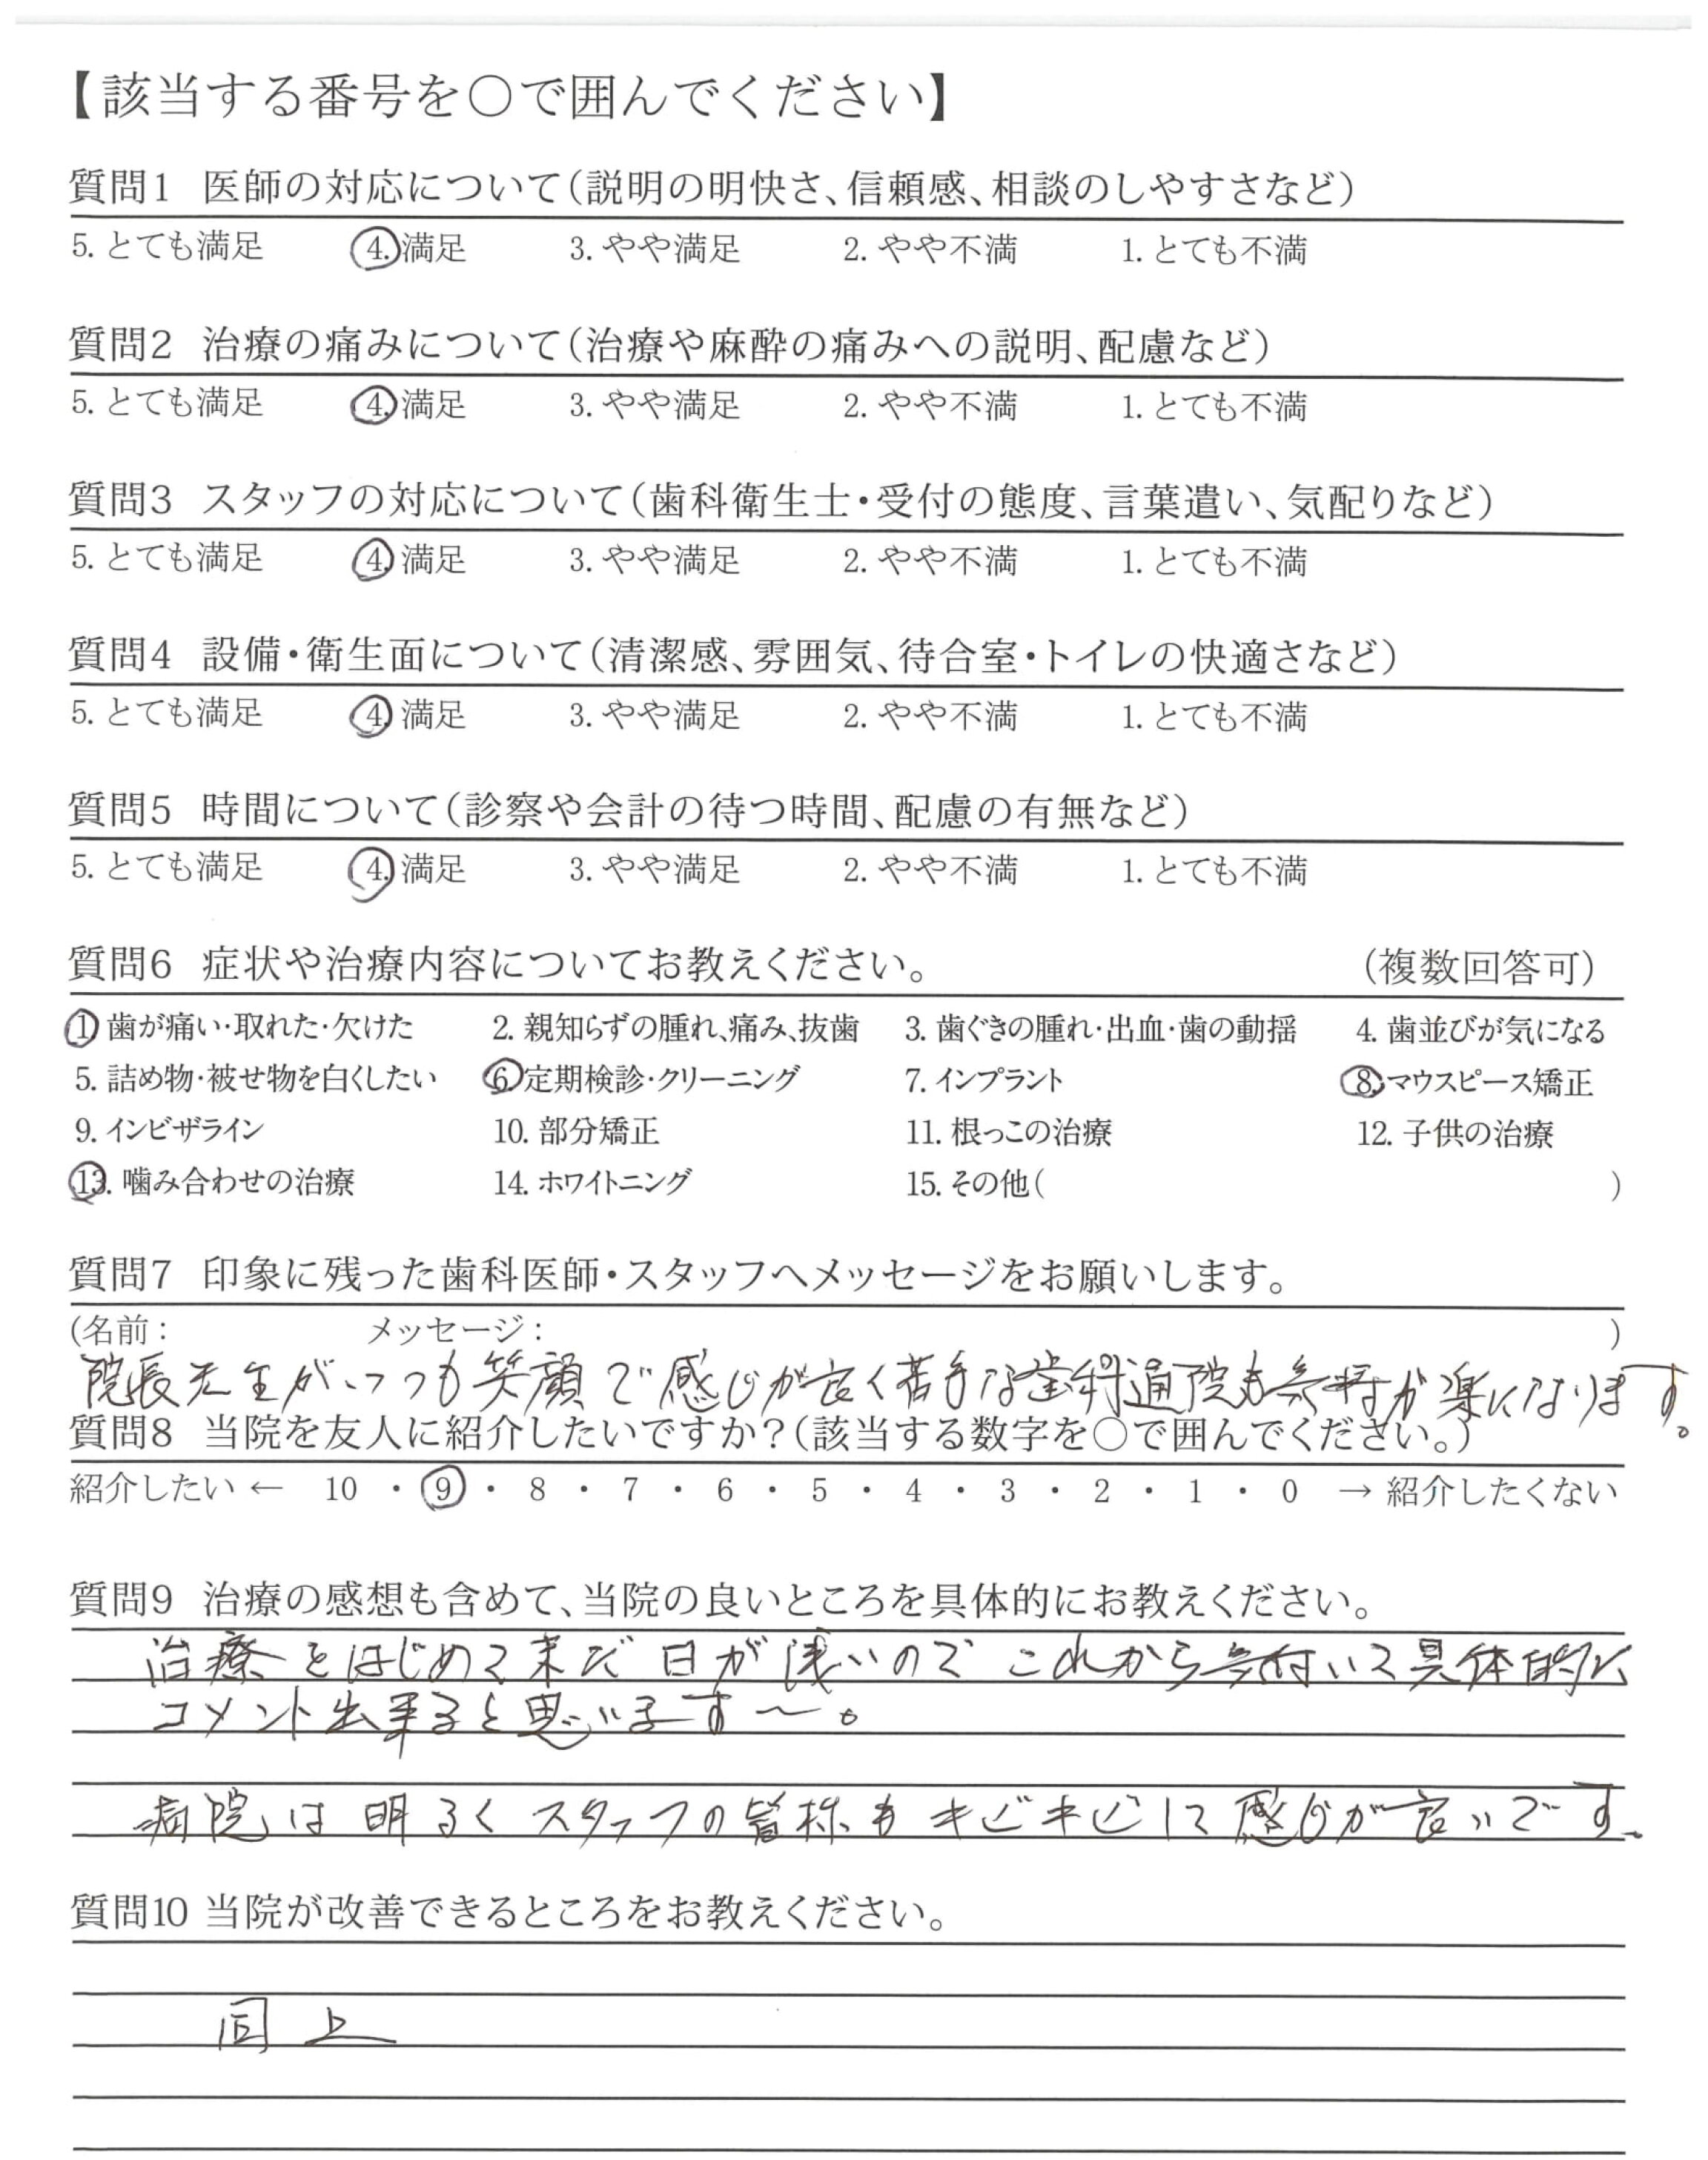 【該当する番号を〇で囲んでください】
質問1 医師の対応について(説明の明快さ、信頼感、相談のしやすさなど)
5. とても満足 4. 満足 3. やや満足 2. やや不満 1. とても不満
質問2 治療の痛みについて(治療や麻酔の痛みへの説明、配慮など)
5. とても満足 4. 満足 3. やや満足 2. やや不満 1. とても不満
質問3 スタッフの対応について(歯科衛生士・受付の態度、言葉遣い、気配りなど)
5. とても満足 4. 満足 3. やや満足 2. やや不満 1. とても不満
質問4 設備・衛生面について(清潔感、雰囲気、待合室・トイレの快適さなど)
5. とても満足 4. 満足 3. やや満足 2. やや不満 1. とても不満
質問5 時間について(診察や会計の待つ時間、配慮の有無など)
5. とても満足 4. 満足 3. やや満足 2. やや不満 1. とても不満
質問6 症状や治療内容についてお教えください。 (複数回答可)
1. 歯が痛い・取れた・欠けた 2. 親知らずの腫れ、痛み、抜歯 3. 歯ぐきの腫れ・出血・歯の動揺 4. 歯並びが気になる
5. 詰め物・被せ物を白くしたい 6. 定期検診・クリーニング 7. インプラント 8. マウスピース矯正
9. インビザライン 10. 部分矯正 11. 根っこの治療 12. 子供の治療
13. 噛み合わせの治療 14. ホワイトニング 15. その他( )
質問7 印象に残った歯科医師・スタッフへメッセージをお願いします。
(名前: メッセージ: )
院長先生がいつも笑顔で感じが良く苦手な歯科通院も気持が楽になります。
質問8 当院を友人に紹介したいですか?(該当する数字を〇で囲んでください。)
紹介したい ← 10 ・ 9 ・ 8 ・ 7 ・ 6 ・ 5 ・ 4 ・ 3 ・ 2 ・ 1 ・ 0 → 紹介したくない
質問9 治療の感想も含めて、当院の良いところを具体的にお教えください。
治療をはじめて未だ日が浅いのでこれから気付いて具体的に
コメント出来ると思います〜。
病院は明るくスタッフの皆様もキビキビして感じが良いです。
質問10 当院が改善できるところをお教えください。
同上